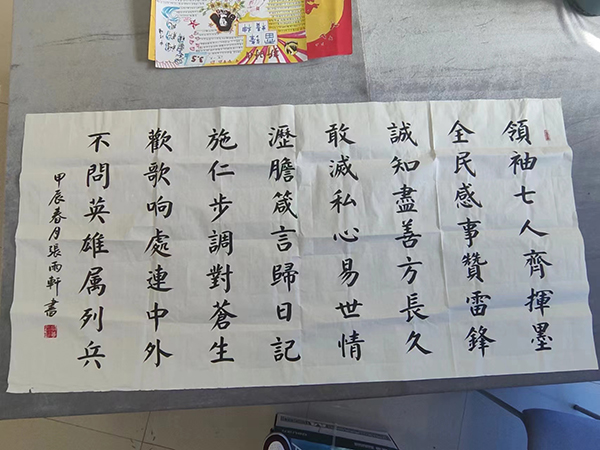 領袖七人齊揮墨
全民感事贊雷鋒
誠知盡善方長久
敢滅私心易世情
瀝膽箴言歸日記
施仁步調對蒼生
歡歌响處連中外
不問英雄属列兵
甲辰春月張雨軒書